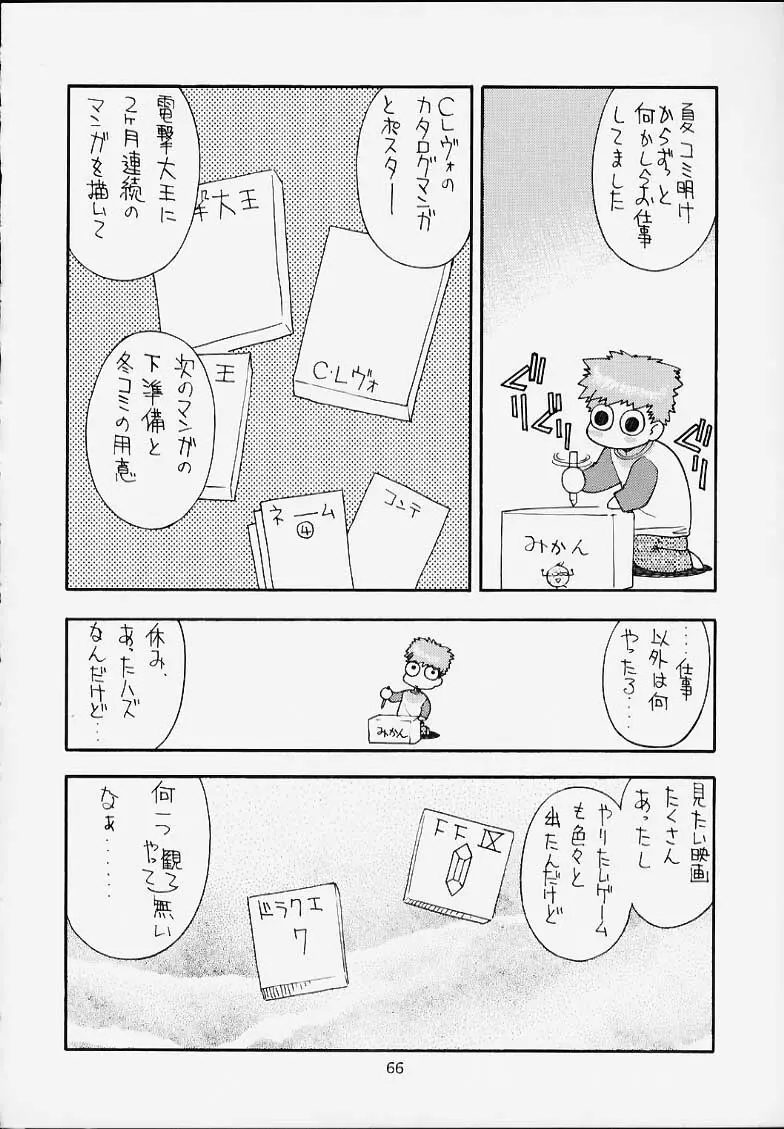 夏コミ明け
からずっと
何かしらお仕事
してました
グリ
グリグリ
みかん
CLヴォの
カタログマンガ
とポスター
C・Lヴォ
電撃大王に
2ヶ月連続の
マンガを描いて
撃大王
王
次のマンガの
下準備と
冬コミの用意
コンテ
ネーム
④
‥‥仕事
以外は何
やったろ‥‥
みかん
休み、
あったハズ
なんだけど‥‥
見たい映画
たくさん
あったし
やりたいゲーム
も色々と
出たんだけど
FFⅨ
ドラクエ
7
何一つ観て
やって無い
なぁ‥‥‥‥
66